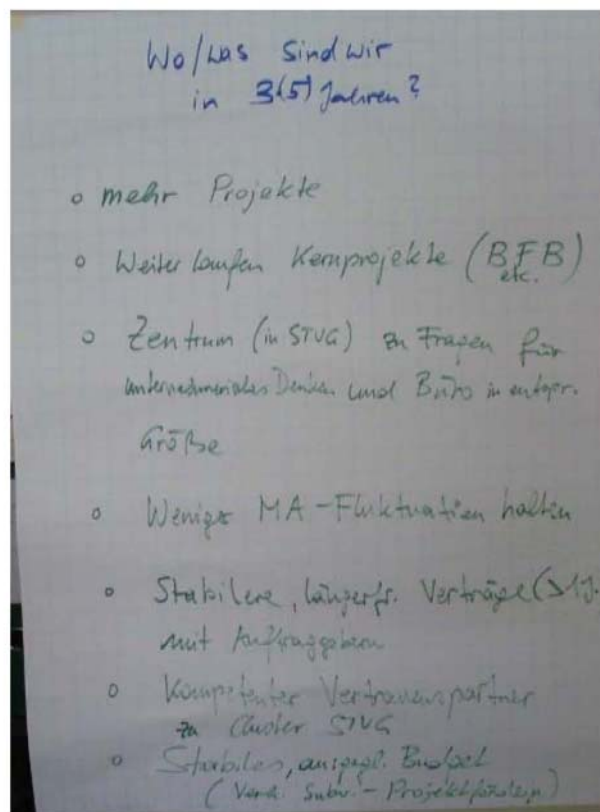 Wo/was sind wir
in 3(5) Jahren?
o mehr Projekte
o Weiterlaufen Kernprojekte (BFB)
etc.
o Zentrum (in STVG) zu Fragen für
unternehmerisches Denken und Büro in entspr.
Größe
o Weniger MA-Fluktuation halten
o Stabilere, längerfr. Verträge (>1J.
mit Auftraggebern
o Kompetenter Vertrauenspartner
zu Cluster STVG
o Stabiles, ausgegl. Budget
(Verh. Subv. - Projektförd.